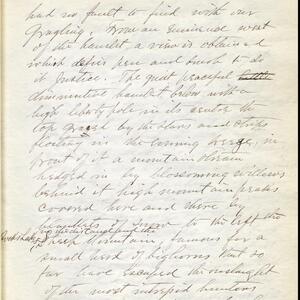 had no fault to find with our
grayling. From an eminence west
of the hamlet, a view is obtained
which defies pen and brush to do
it justice. The quiet peaceful little
diminutive hamlet below with a
high liberty pole in its center the
top graced by the stars and strips
floating in the evening breeze, in
front of it a mountain stream
hedged in by blossoming willows
behind it high mountain peaks
covered here and there by
of snow to the left the
Sheep Mountain, famous for a
small herd of bighorns that so
far have escaped the onslaught
of the most intrepid hunters